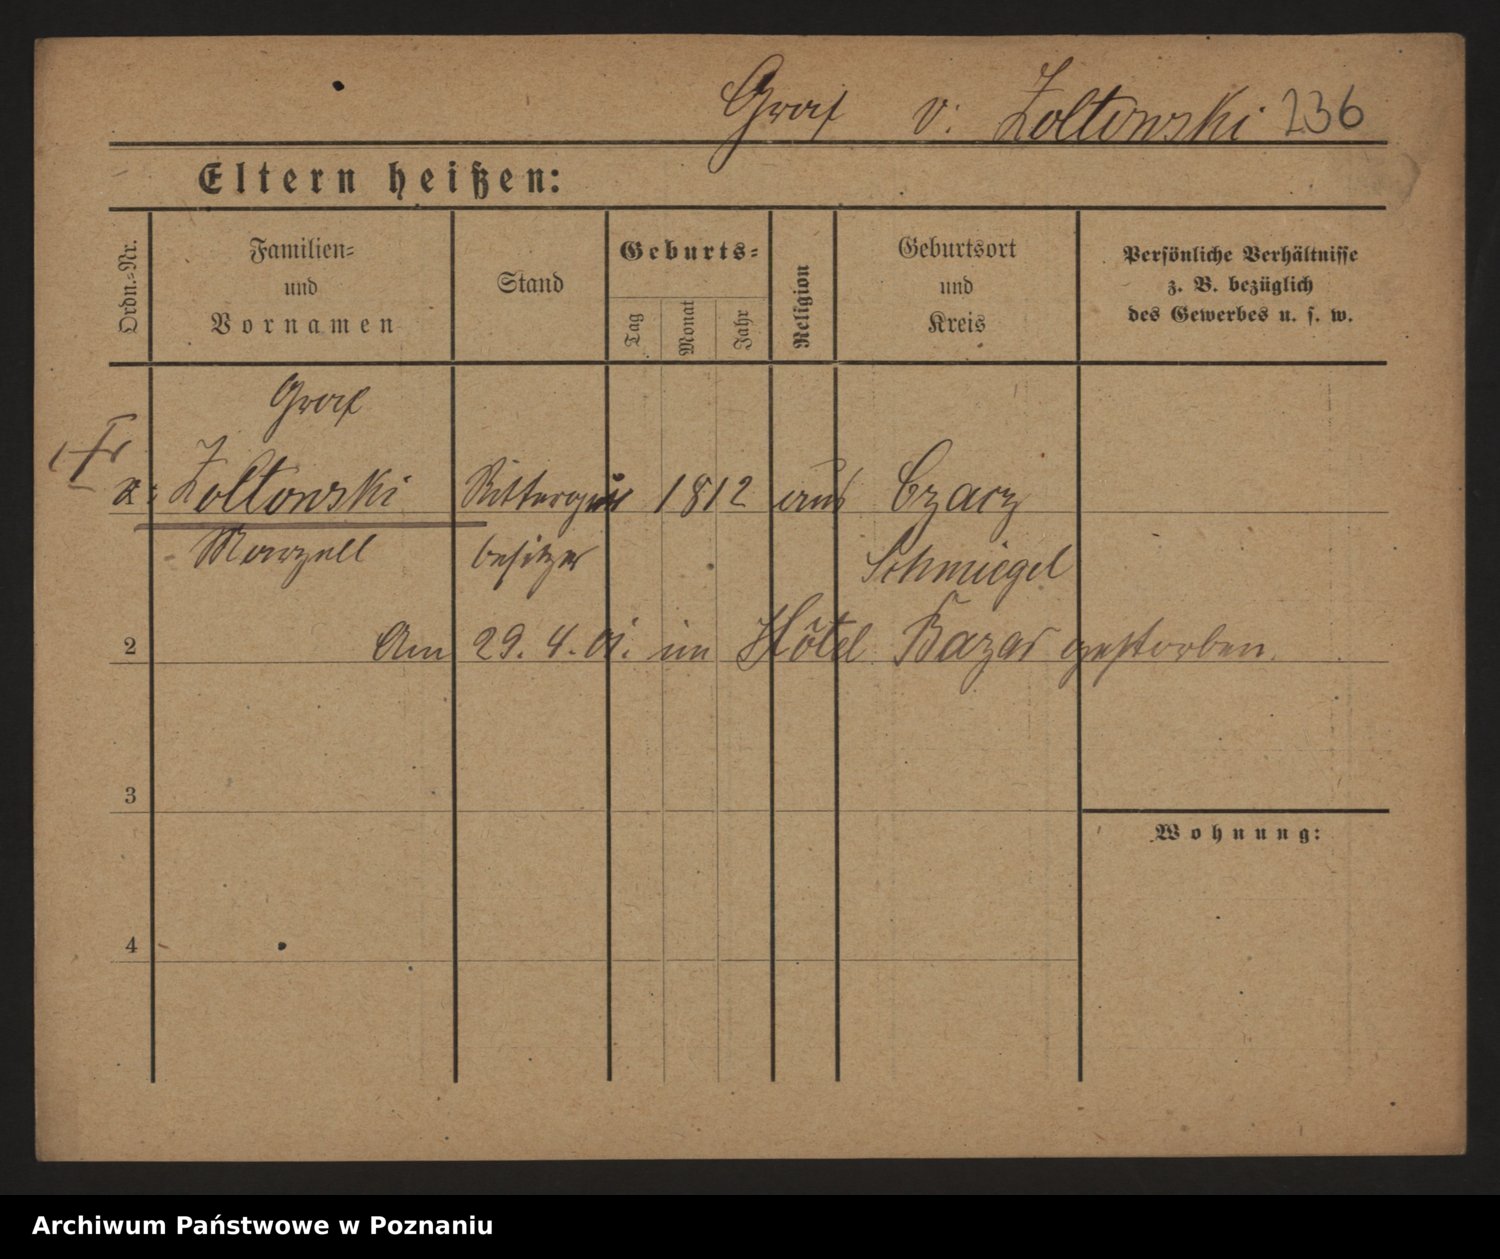 Graf v. Żoltowski 236
Eltern heißen:
Ordn.-Nr.
Familien-
und
Vornamen
Stand
Geburts-
Tag
Monat
Jahr
Religion
Geburtsort
und
Kreis
Persönliche Verhältnisse
z. B. bezüglich
des Gewerbes u. s. w.
Graf
Żoltowski Ritterguts 1812 aus Czacz
Marzell besitzer Schmiegel
2 Am 29. 4. 01. im Hôtel Bazar gestorben.
3
Wohnung:
4
Archiwum Państwowe w Poznaniu